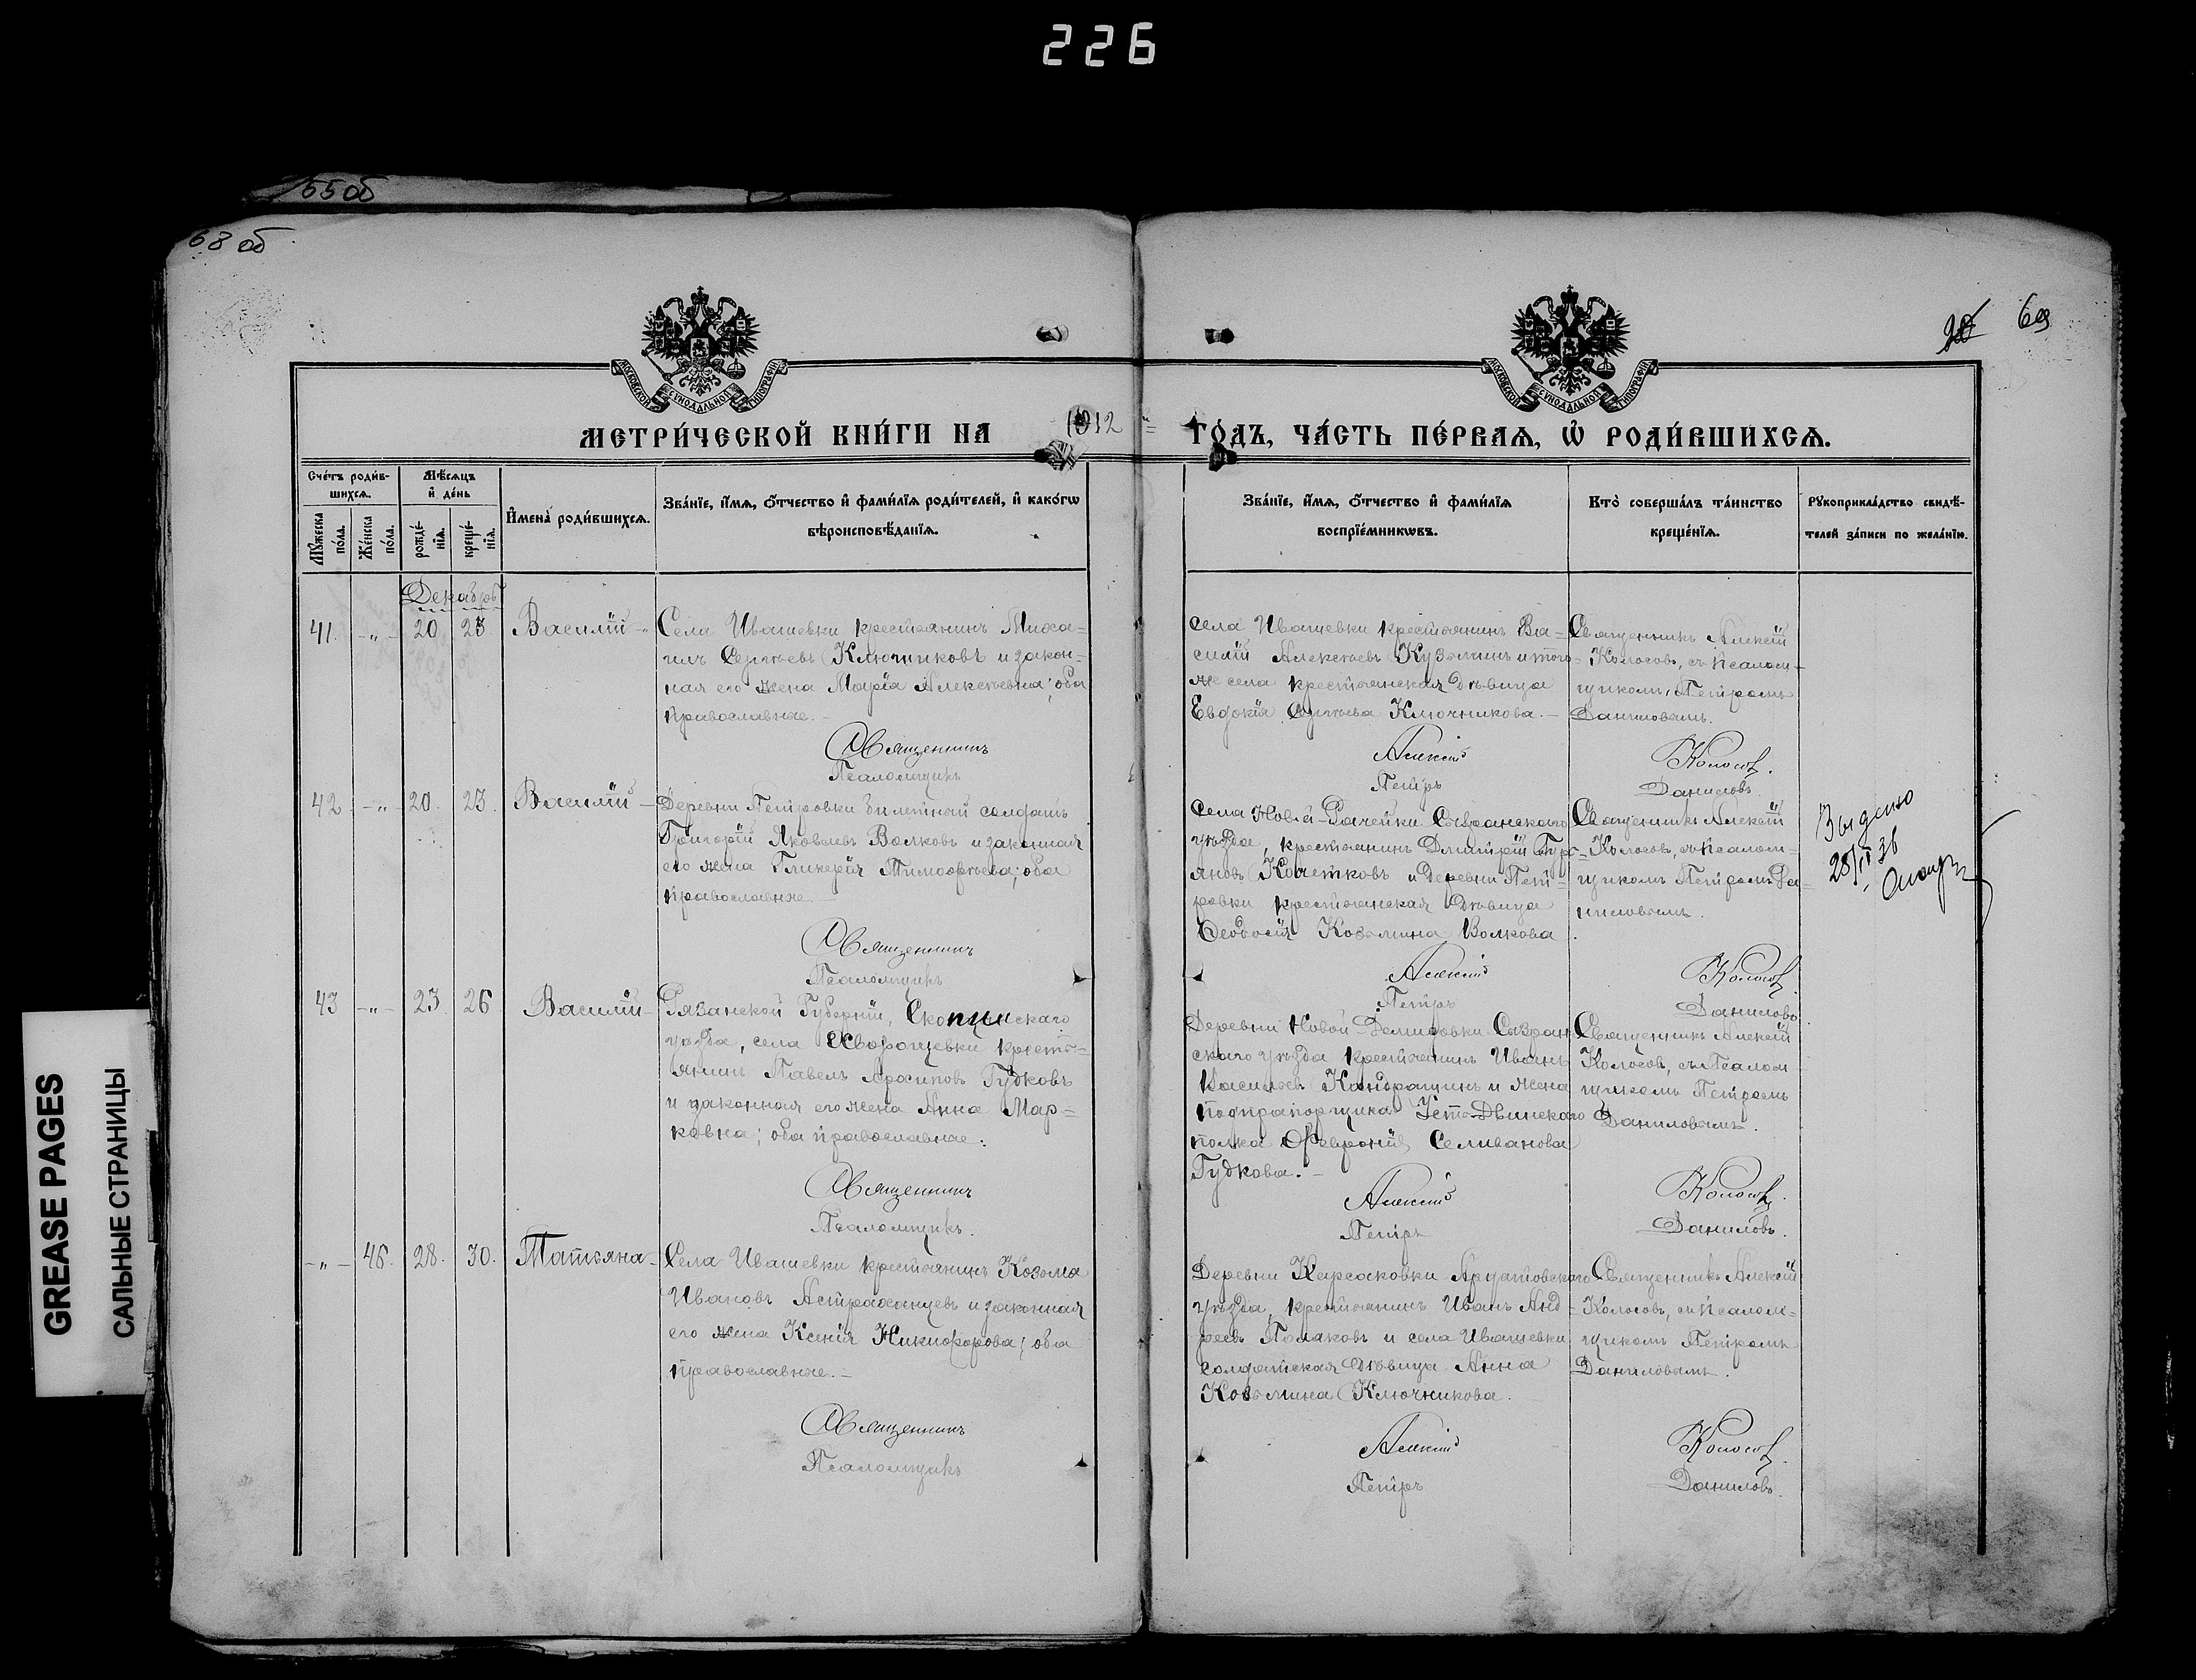 226
55 об
68 об
69
МОСКОВСКОЙ СѴНОДАЛЬНОЙ ТИПОГРАФІИ
МОСКОВСКОЙ СѴНОДАЛЬНОЙ ТИПОГРАФІИ
МЕТРИ́ЧЕСКОЙ КНИ́ГИ НА 1912 ГО́ДЪ, ЧА́СТЬ ПЕ́РВАѦ, Ѡ҆ РОДИ́ВШИХСѦ.
Сче́тъ роди́в-
шихсѧ.
Мѣ́сѧцъ
и҆ де́нь
Мꙋ́жеска
по́ла.
Же́нска
по́ла.
рожде́-
нїѧ.
креще́-
нїѧ.
И҆мена̀ роди́вшихсѧ.
Зва́нїе, и҆́мѧ, ѻ҆́тчество и҆ фами́лїѧ роди́телей, и҆ како́гѡ
вѣроисповѣ́данїѧ.
Зва́нїе, и҆́мѧ, ѻ҆́тчество и҆ фами́лїѧ
воспрїе́мникѡвъ.
Кто̀ соверша́лъ та́инство
креще́нїѧ.
Рꙋкоприкла́дство свидѣ́-
телей за́писи по жела́нїю.
Декабрь
41. -"- 20 23 Василій -
Села Ивашевки крестьянинъ Миха-
илъ Сергѣевъ Ключниковъ и закон-
ная его жена Марія Алексѣевна; оба
православные. -
Священникъ
Псаломщикъ
села Ивашевки крестьянинъ Ва-
силій Алексѣевъ Кузьминъ и того-
же села крестьянская дѣвица
Евдокія Сергѣева Ключникова. -
Алексій
Петръ
Священникъ Алексій
Колосовъ, съ псалом-
щикомъ, Петромъ
Даниловымъ.
Колосовъ.
Даниловъ.
42 -"- 20. 23. Василій -
Деревни Петровки билетный солдатъ
Григорій Яковлевъ Волковъ и законная
его жена Гликерія Тимофѣева; оба
православные. -
Священникъ
Псаломщикъ
села Новой-Рачейки Сызранскаго
уѣзда, крестьянинъ Дмитрій
Кочетковъ и деревни Пет-
ровки крестьянская дѣвица
Феодосія Козьмина Волкова.
Алексій
Петръ
Священникъ Алексій
Колосовъ, съ псалом-
щикомъ Петромъ Да-
ниловымъ.
Колосовъ
Даниловъ
28/II 36
43 -"- 23. 26 Василій -
Рязанской Губерніи, Скопинскаго
уѣзда, села Хворощевки кресть-
янинъ Павелъ Архиповъ Гудковъ
и законная его жена Анна Мар-
ковна; оба православные.
Священникъ
Псаломщикъ.
Деревни Новой-Демидовки Сызран-
скаго уѣзда крестьянинъ Иванъ
Васильевъ Кандрашинъ и жена
подпрапорщика Усть-Двинскаго
полка Февронія Селиванова
Гудкова. -
Алексій
Петръ
Священникъ Алексій
Колосовъ, съ Псалом-
щикомъ Петромъ
Даниловымъ.
Колосовъ.
Даниловъ.
-"- 46. 28. 30. Татьяна -
Села Ивашевки крестьянинъ Козьма
Ивановъ Астраханцевъ и законная
его жена Ксенія Никифорова; оба
православные. -
Священникъ
Псаломщикъ
Деревни Карсаковки Ардатовскаго
уѣзда, крестьянинъ Иванъ Анд-
реевъ Поляковъ и села Ивашевки
солдатская дѣвица Анна
Козьмина Ключникова.
Алексій
Петръ
Священникъ Алексій
Колосовъ, съ псалом-
щикомъ Петромъ
Даниловымъ.
Колосовъ.
Даниловъ.
GREASE PAGES
САЛЬНЫЕ СТРАНИЦЫ